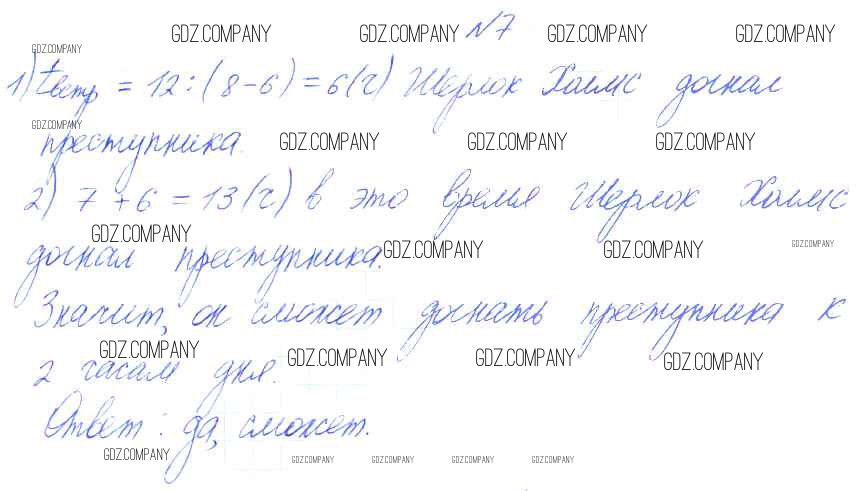 GDZ.COMPANY GDZ.COMPANY №7 GDZ.COMPANY GDZ.COMPANY
GDZ.COMPANY
1) tвстр = 12 : (8 - 6) = 6 (ч) Шерлок Холмс догнал
GDZ.COMPANY
преступника. GDZ.COMPANY GDZ.COMPANY GDZ.COMPANY
2) 7 + 6 = 13 (ч) в это время Шерлок Холмс
GDZ.COMPANY GDZ.COMPANY GDZ.COMPANY GDZ.COMPANY
догнал преступника.
Значит, он сможет догнать преступника к
GDZ.COMPANY GDZ.COMPANY GDZ.COMPANY GDZ.COMPANY
2 часам дня.
Ответ: да, сможет.
GDZ.COMPANY GDZ.COMPANY GDZ.COMPANY GDZ.COMPANY GDZ.COMPANY